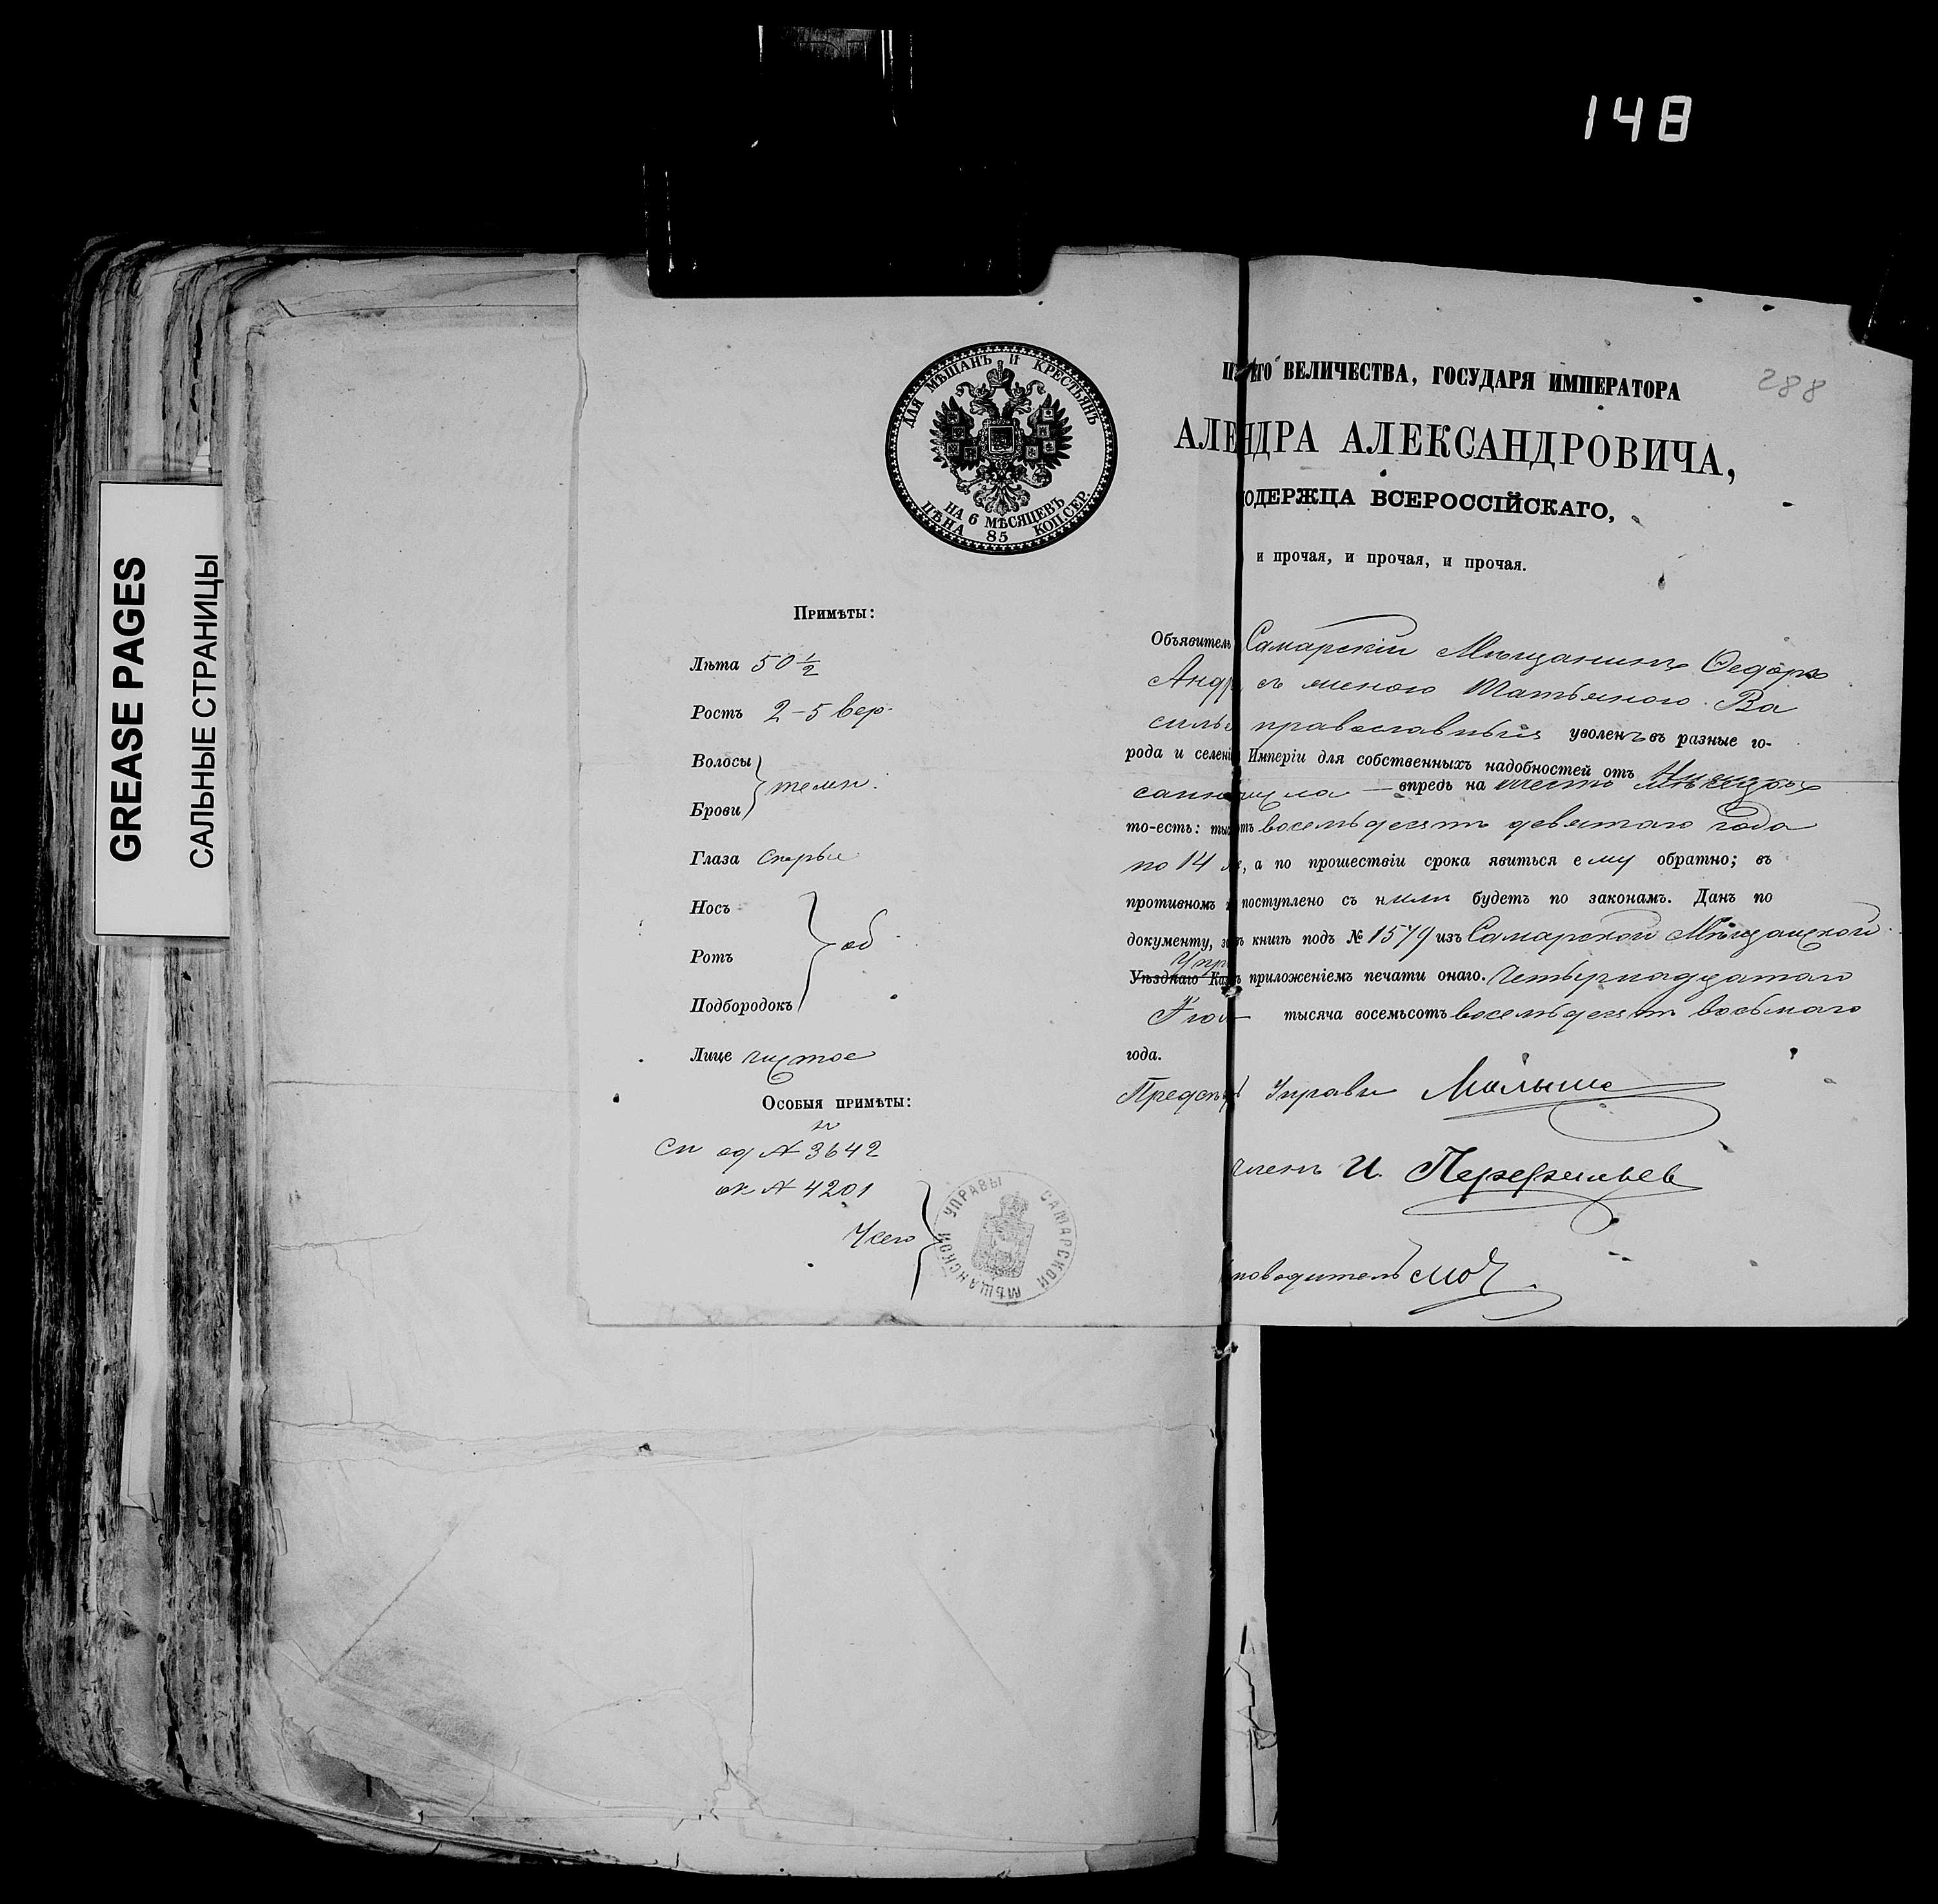 148
GREASE PAGES
САЛЬНЫЕ СТРАНИЦЫ
288
ДЛЯ МѢЩАНЪ И КРЕСТЬЯНЪ
НА 6 МѢСЯЦЕВЪ
ЦѢНА 85 КОП СЕР.
ЕГО ВЕЛИЧЕСТВА, ГОСУДАРЯ ИМПЕРАТОРА
АЛЕ НДРА АЛЕКСАНДРОВИЧА,
ОДЕРЖЦА ВСЕРОССІЙСКАГО,
и прочая, и прочая, и прочая.
Примѣты:
Лѣта 50 ½
Ростъ 2-5 вер.
Волосы
Брови } темн.
Глаза
Носъ
Ротъ } об
Подбородокъ
Лице чистое
Особыя примѣты:
№ 3642
№ 4201
САМАРСКОЙ МѢЩАНСКОЙ УПРАВЫ
Объявитель Самарскій Мѣщанинъ Ѳедоръ
Андр съ женою Татьяною Ва
силь православный уволенъ въ разные го-
рода и селені Имперіи для собственныхъ надобностей отъ
впредь на шесть мѣсяцовъ
то-есть: тыс отъ восемьдесятъ девятаго года
по 14 , а по прошествіи срока явиться ему обратно; въ
противномъ поступлено съ нимъ будетъ по законамъ. Данъ по
документу, за ъ книгѣ подъ № 1579 изъ Самарской Мѣщанской
Упр
Уѣзднаго Каз ъ приложеніемъ печати онаго. Четырнадцатаго
Іюл тысяча восемьсотъ восемьдесятъ восьмаго
года.
Предсѣд Управы
членъ И.
производитель